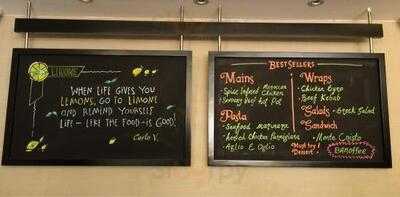 LIMONE
WHEN LIFE GIVES YOU
LEMONS, GO TO LIMONE
AND REMIND YOURSELF
LIFE - LIKE THE FOOD - IS GOOD!
Carlo V.
BESTSELLERS
Mains
Spice Infused Moroccan Chicken
Savoury Hot Pot
Pasta
Seafood marinare
Chicken Parmigiana
Aglio E Olio
Wraps
Chicken Gyro
Beef Kebab
Salads - Greek Salad
Sandwich
Monte Cristo
Must try!
Dessert -
BANOFFEE